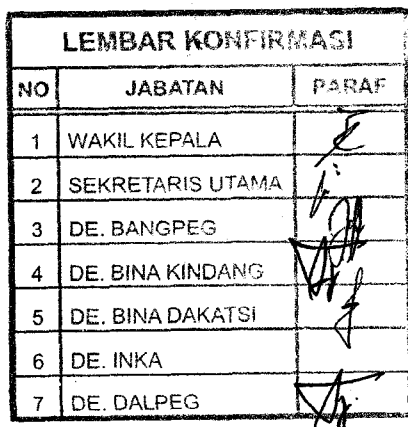 LEMBAR KONFIRMASI
NO JABATAN PARAF
1 WAKIL KEPALA
2 SEKRETARIS UTAMA
3 DE. BANGPEG
4 DE. BINA KINDANG
5 DE. BINA DAKATSI
6 DE. INKA
7 DE. DALPEG